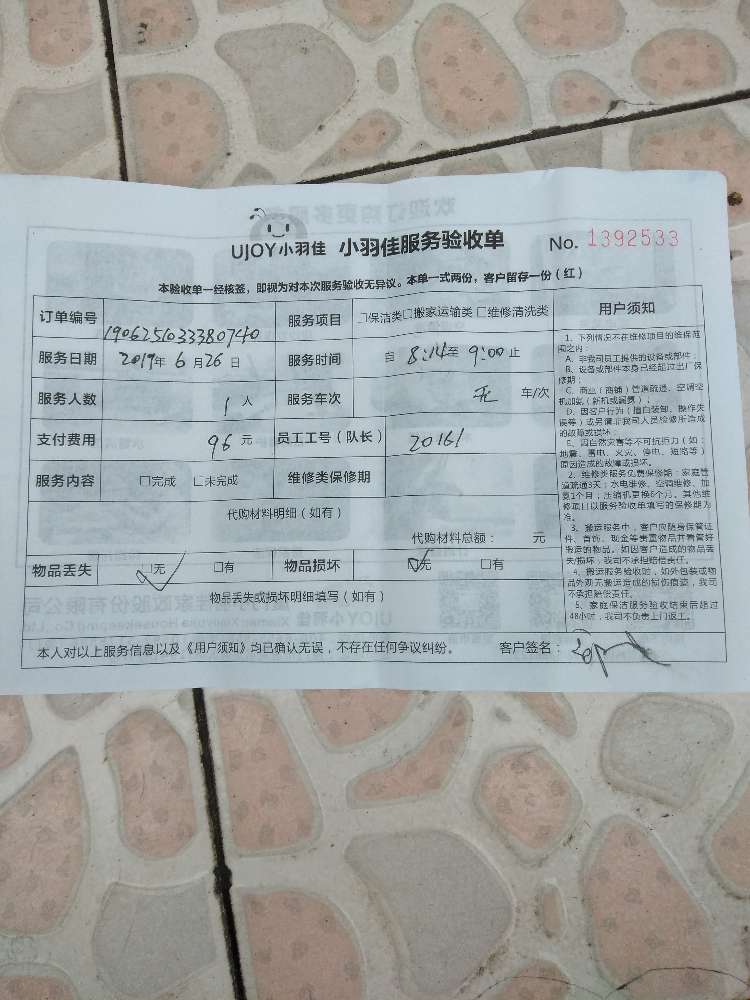 UJOY小羽佳 小羽佳服务验收单 No. 1392533
本验收单一经核签，即视为对本次服务验收无异议。本单一式两份，客户留存一份（红）
订单编号 1906251033380740 服务项目 □保洁类□搬家运输类 □维修清洗类
服务日期 2019年 6月26日 服务时间 自 8:14至 9:00止
服务人数 1人 服务车次 无 车/次
支付费用 96元 员工工号（队长） 20161
服务内容 □完成 □未完成 维修类保修期
代购材料明细（如有）
代购材料总额： 元
物品丢失 ☑无 □有 物品损坏 ☑无 □有
物品丢失或损坏明细填写（如有）
本人对以上服务信息以及《用户须知》均已确认无误，不存在任何争议纠纷。 客户签名：
用户须知
1、下列情况不在维修项目的维保范
围之内：
A、非我司员工提供的设备或部件；
B、设备或部件本身已经超过出厂保
修期；
C、商业（商铺）管道疏通、空调空
机加氨（新机或漏氨）；
D、因客户行为（擅自装卸、操作失
误等）或另请非我司人员检修所造成
的故障或损坏；
E、因自然灾害等不可抗拒力（如：
地震、雷电、火灾、停电、短路等）
原因造成的故障或损坏。
2、维修类服务免费保修期：家庭管
道疏通3天；水电维修、空调维修、加
氨1个月；压缩机更换6个月。其他维
修项目以服务验收单填写的保修期为
准。
3、搬运服务中，客户应随身保管证
件、首饰、现金等贵重物品并看管好
搬运的物品。如因客户造成的物品丢
失/损坏，我司不承担赔偿责任。
4、搬运服务验收时，如外包装或物
品外观无搬运造成的刮伤痕迹，我司
不承担赔偿责任。
5、家庭保洁服务验收结束后超过
48小时，我司不负责上门返工。